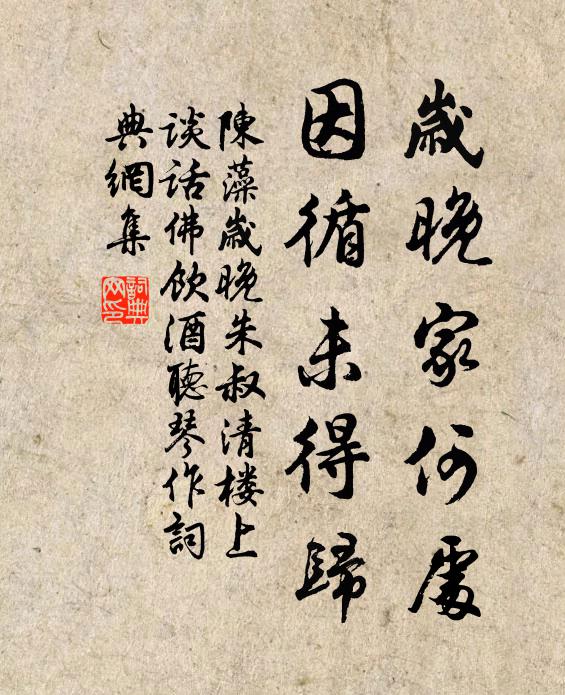 歲晚家何處
因循未得歸
陳藻歲晚朱叔清楼上
談話佛飲酒聽琴作詞
典網集
詞典
网印